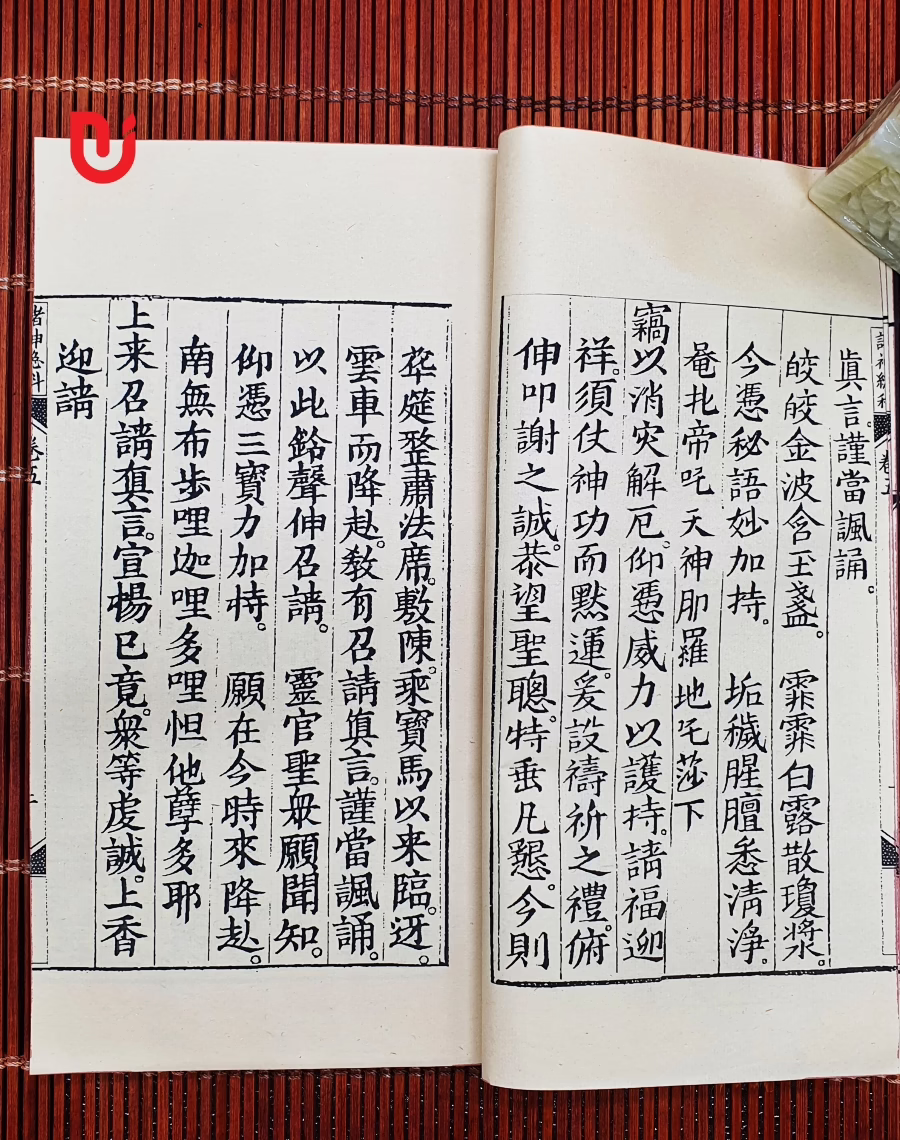 眞言。謹當諷誦。
皎皎金波含玉盞。 霏霏白露散瓊漿。
今憑秘語妙加持。 垢穢腥膻悉清淨。
唵扎帝吒天神那羅地吒莎下
竊以消灾解厄。仰慿威力以護持。請福迎
祥。須仗神功而默運。爰設禱祈之禮。俯
伸叩謝之誠。恭望聖聰。特垂凡懇。今則
筵整肅。法席敷陳。乘寶馬以来臨。迓
雲車而降赴。教有召請眞言。謹當諷誦。
以此鈴聲伸召請。 靈官聖衆願聞知。
仰憑三寶力加持。 願在今時來降赴。
南無布步哩迦哩多哩怛他孽多耶
上来召請眞言。宣楊已竟。衆等虔誠。上香
迎請
卷五